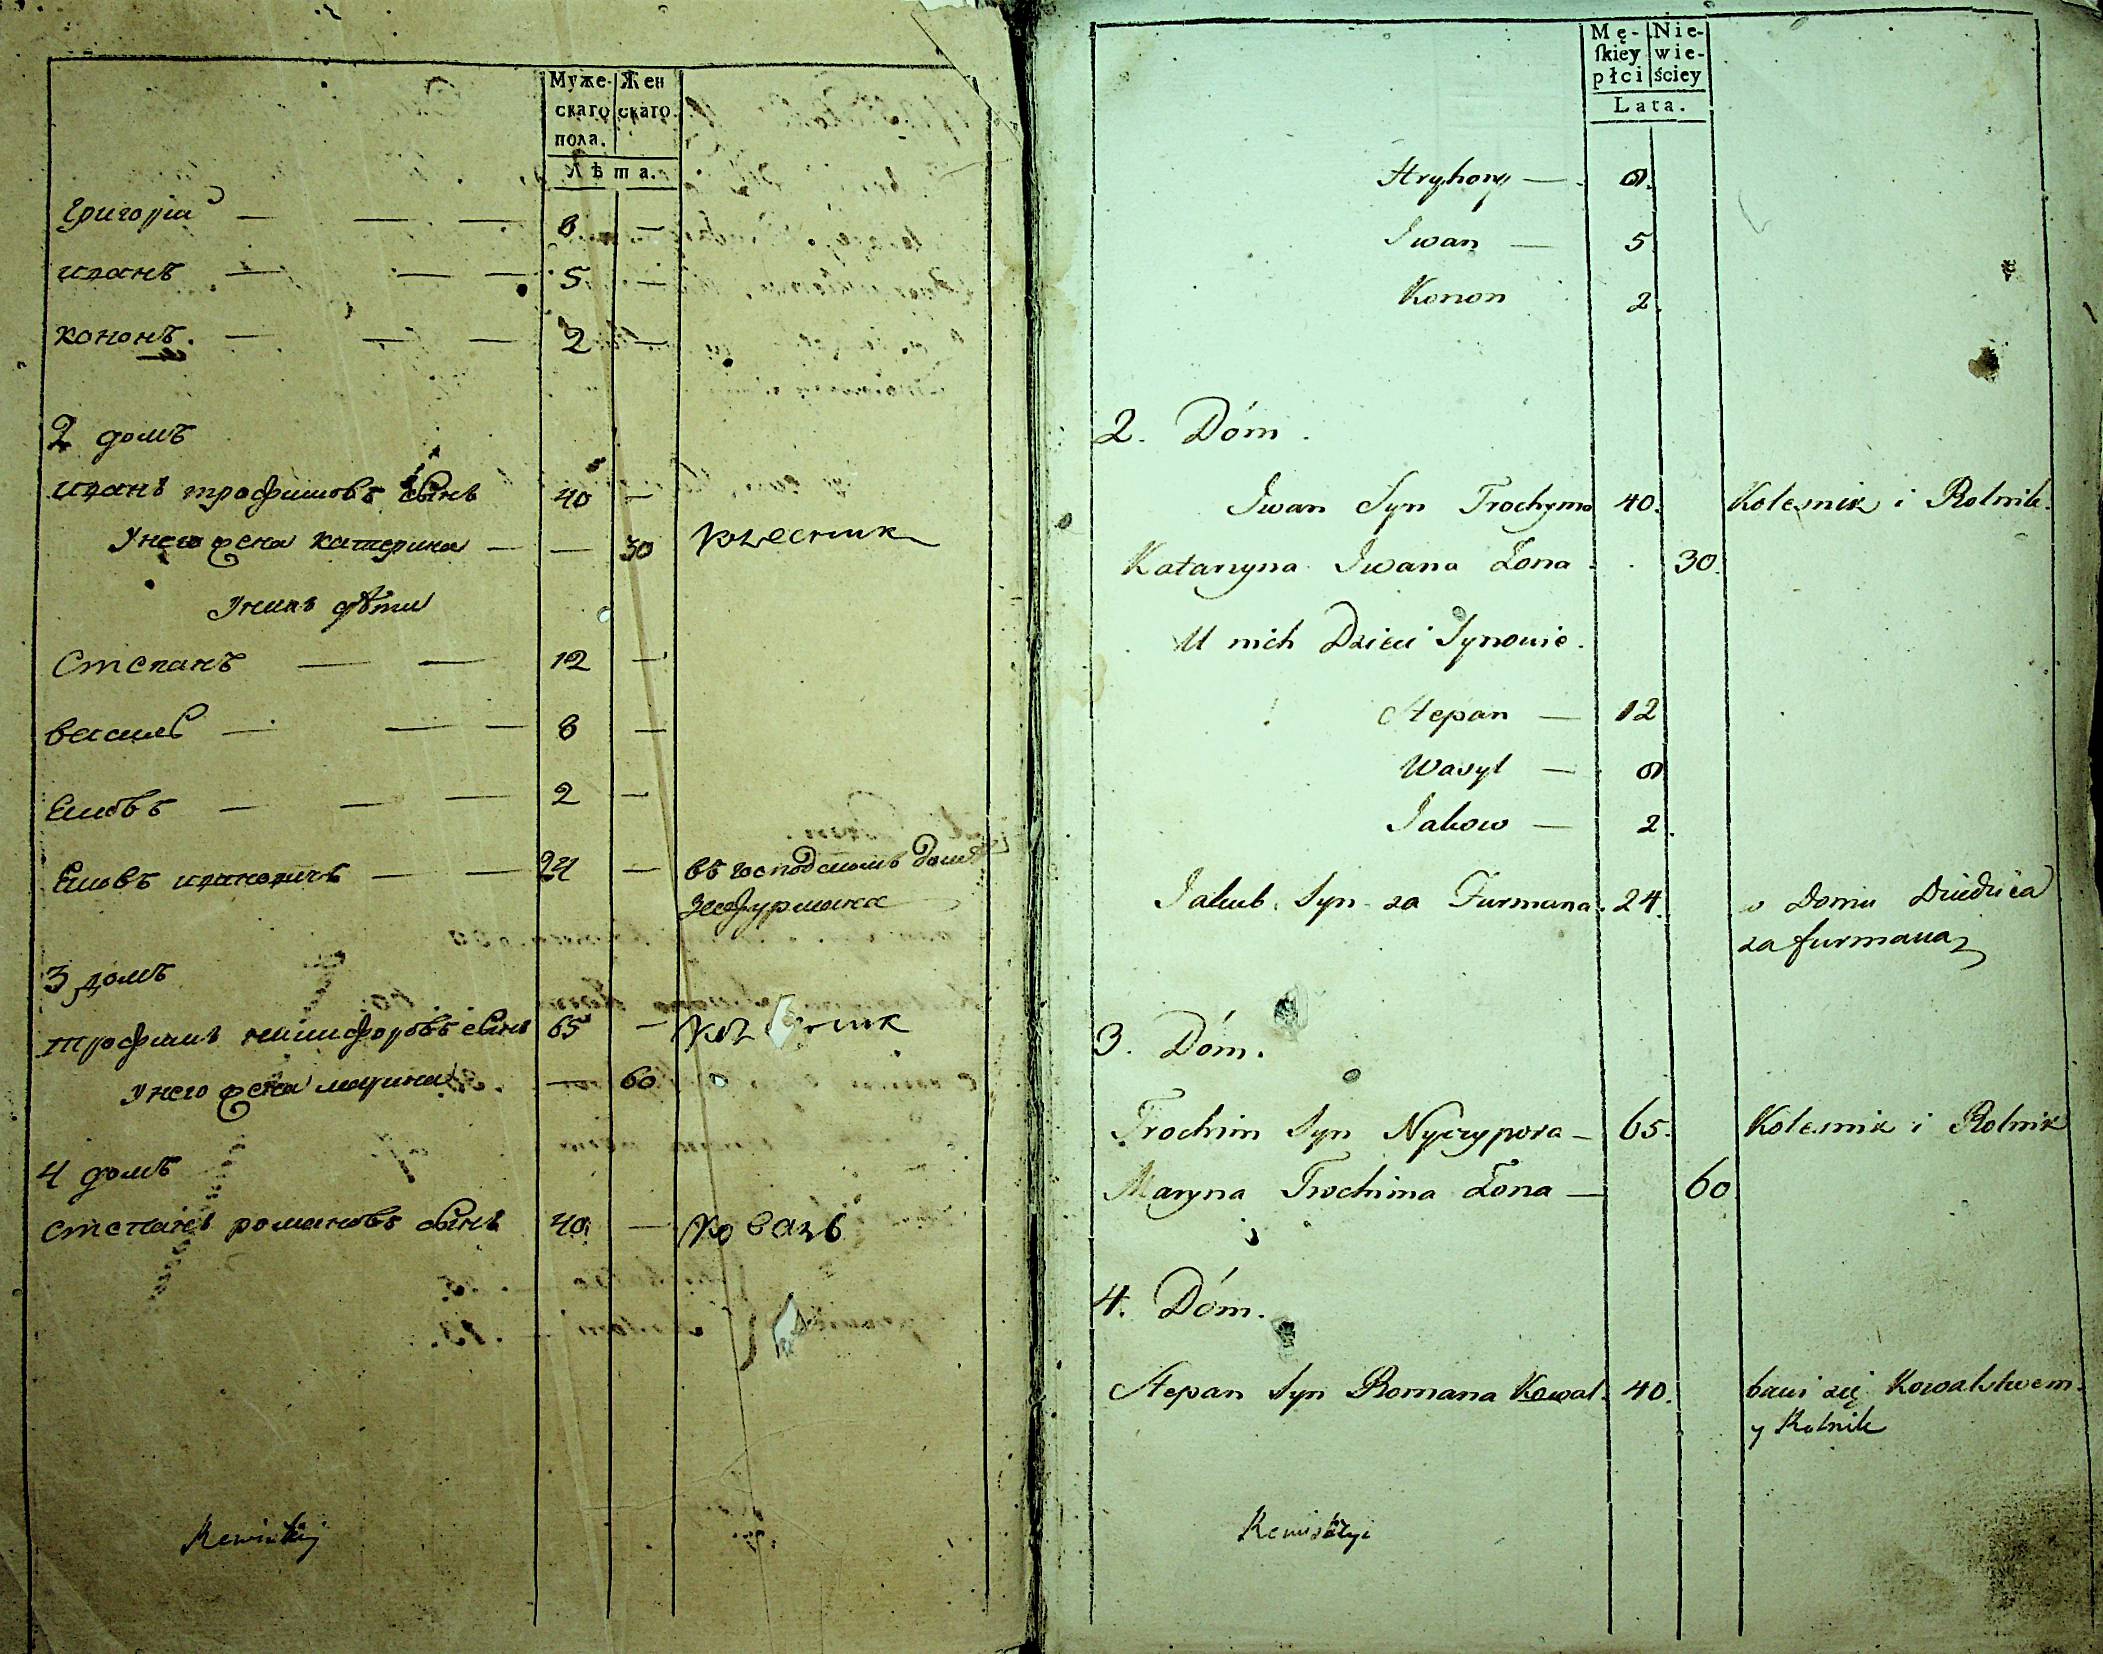 Муже-
скаго
пола.
Жен
скаго.
Лѣта.
Григорiй — — — 8 —
иванъ — — — 5 —
кононъ. — — — 2 —
2 домъ
иванъ трофимовъ сынъ 40 —
У него жена катерина — — 30 колесник
У нихъ дѣти
Степанъ — — 12 —
василь — — — 8 —
Яковъ — — — 2 —
Яковъ ивановичъ — — 24 — въ господскомъ доме
за фурмана
3 домъ
трофимъ никифоровъ сынъ 65 —
У него жена марина — 60
4 домъ
степанъ романовъ сынъ 40 — коваль
Męskiey
płci
Nie-
wie-
ściey
Lata.
Hryhory — 8.
Iwan — 5
Konon 2.
2. Dóm.
Iwan Syn Trochyma 40. Kolesnik i Rolnik.
Katarzyna Iwana Żona . 30.
U nich Dzieci Synowie.
Stepan — 12
Wasyl — 8
Jakow — 2.
Jakub Syn za Furmana. 24. w Domu Dziedzica
za furmana
3. Dóm.
Trochim Syn Nyczypora — 65. Kolesnik i Rolnik
Maryna Trochima Żona — 60
4. Dóm.
Stepan Syn Romana Kowal. 40. bawi się Kowalstwem.
y Rolnik